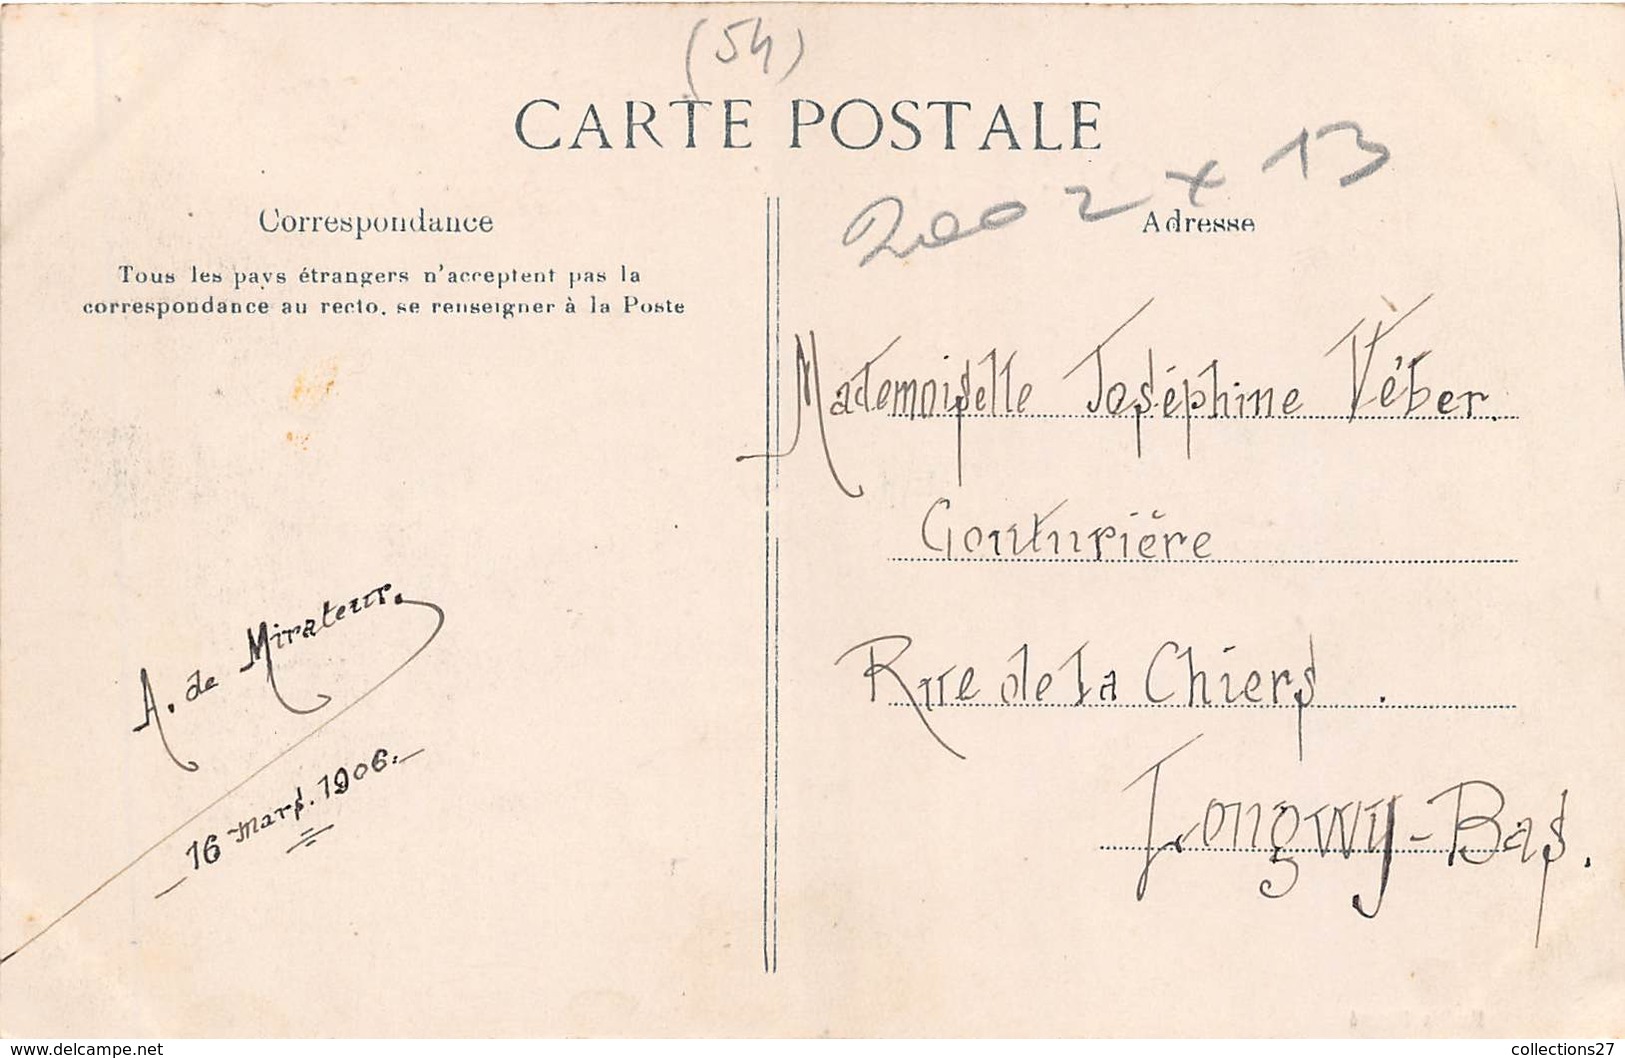 (54)
CARTE POSTALE
2002 x 13
Correspondance
Tous les pays étrangers n'acceptent pas la
correspondance au recto, se renseigner à la Poste
A. de Mirateur.
16 mars. 1906.
Adresse
Mademoiselle Joséphine Véber.
Couturière
Rue de la Chiers.
Longwy-Bas.
www.delcampe.net
collections27